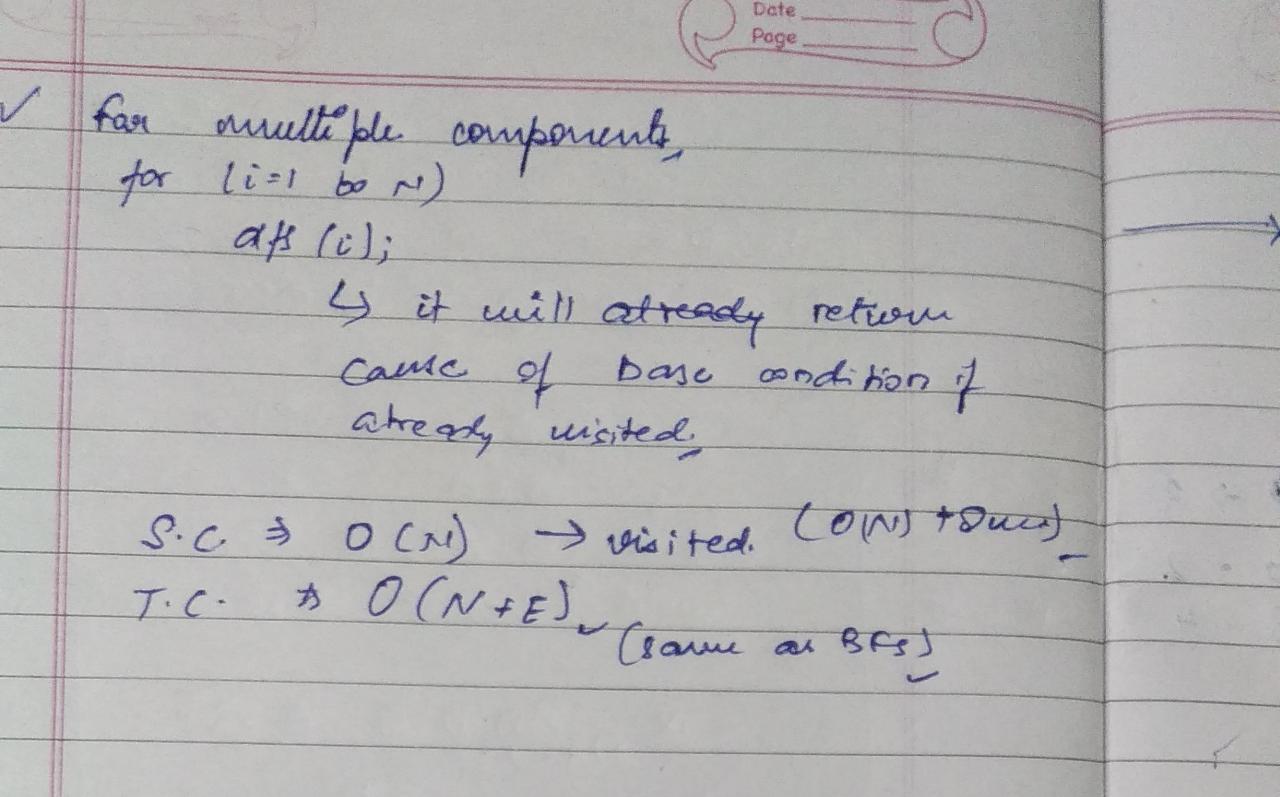 Date
Page
for multiple components,
for (i=1 to N)
dfs (i);
↳ it will already return
cause of base condition if
already visited.
S.C. ⇒ O(N) → visited. (O(N) +
T.C. ⇒ O(N+E) (same as BFS)